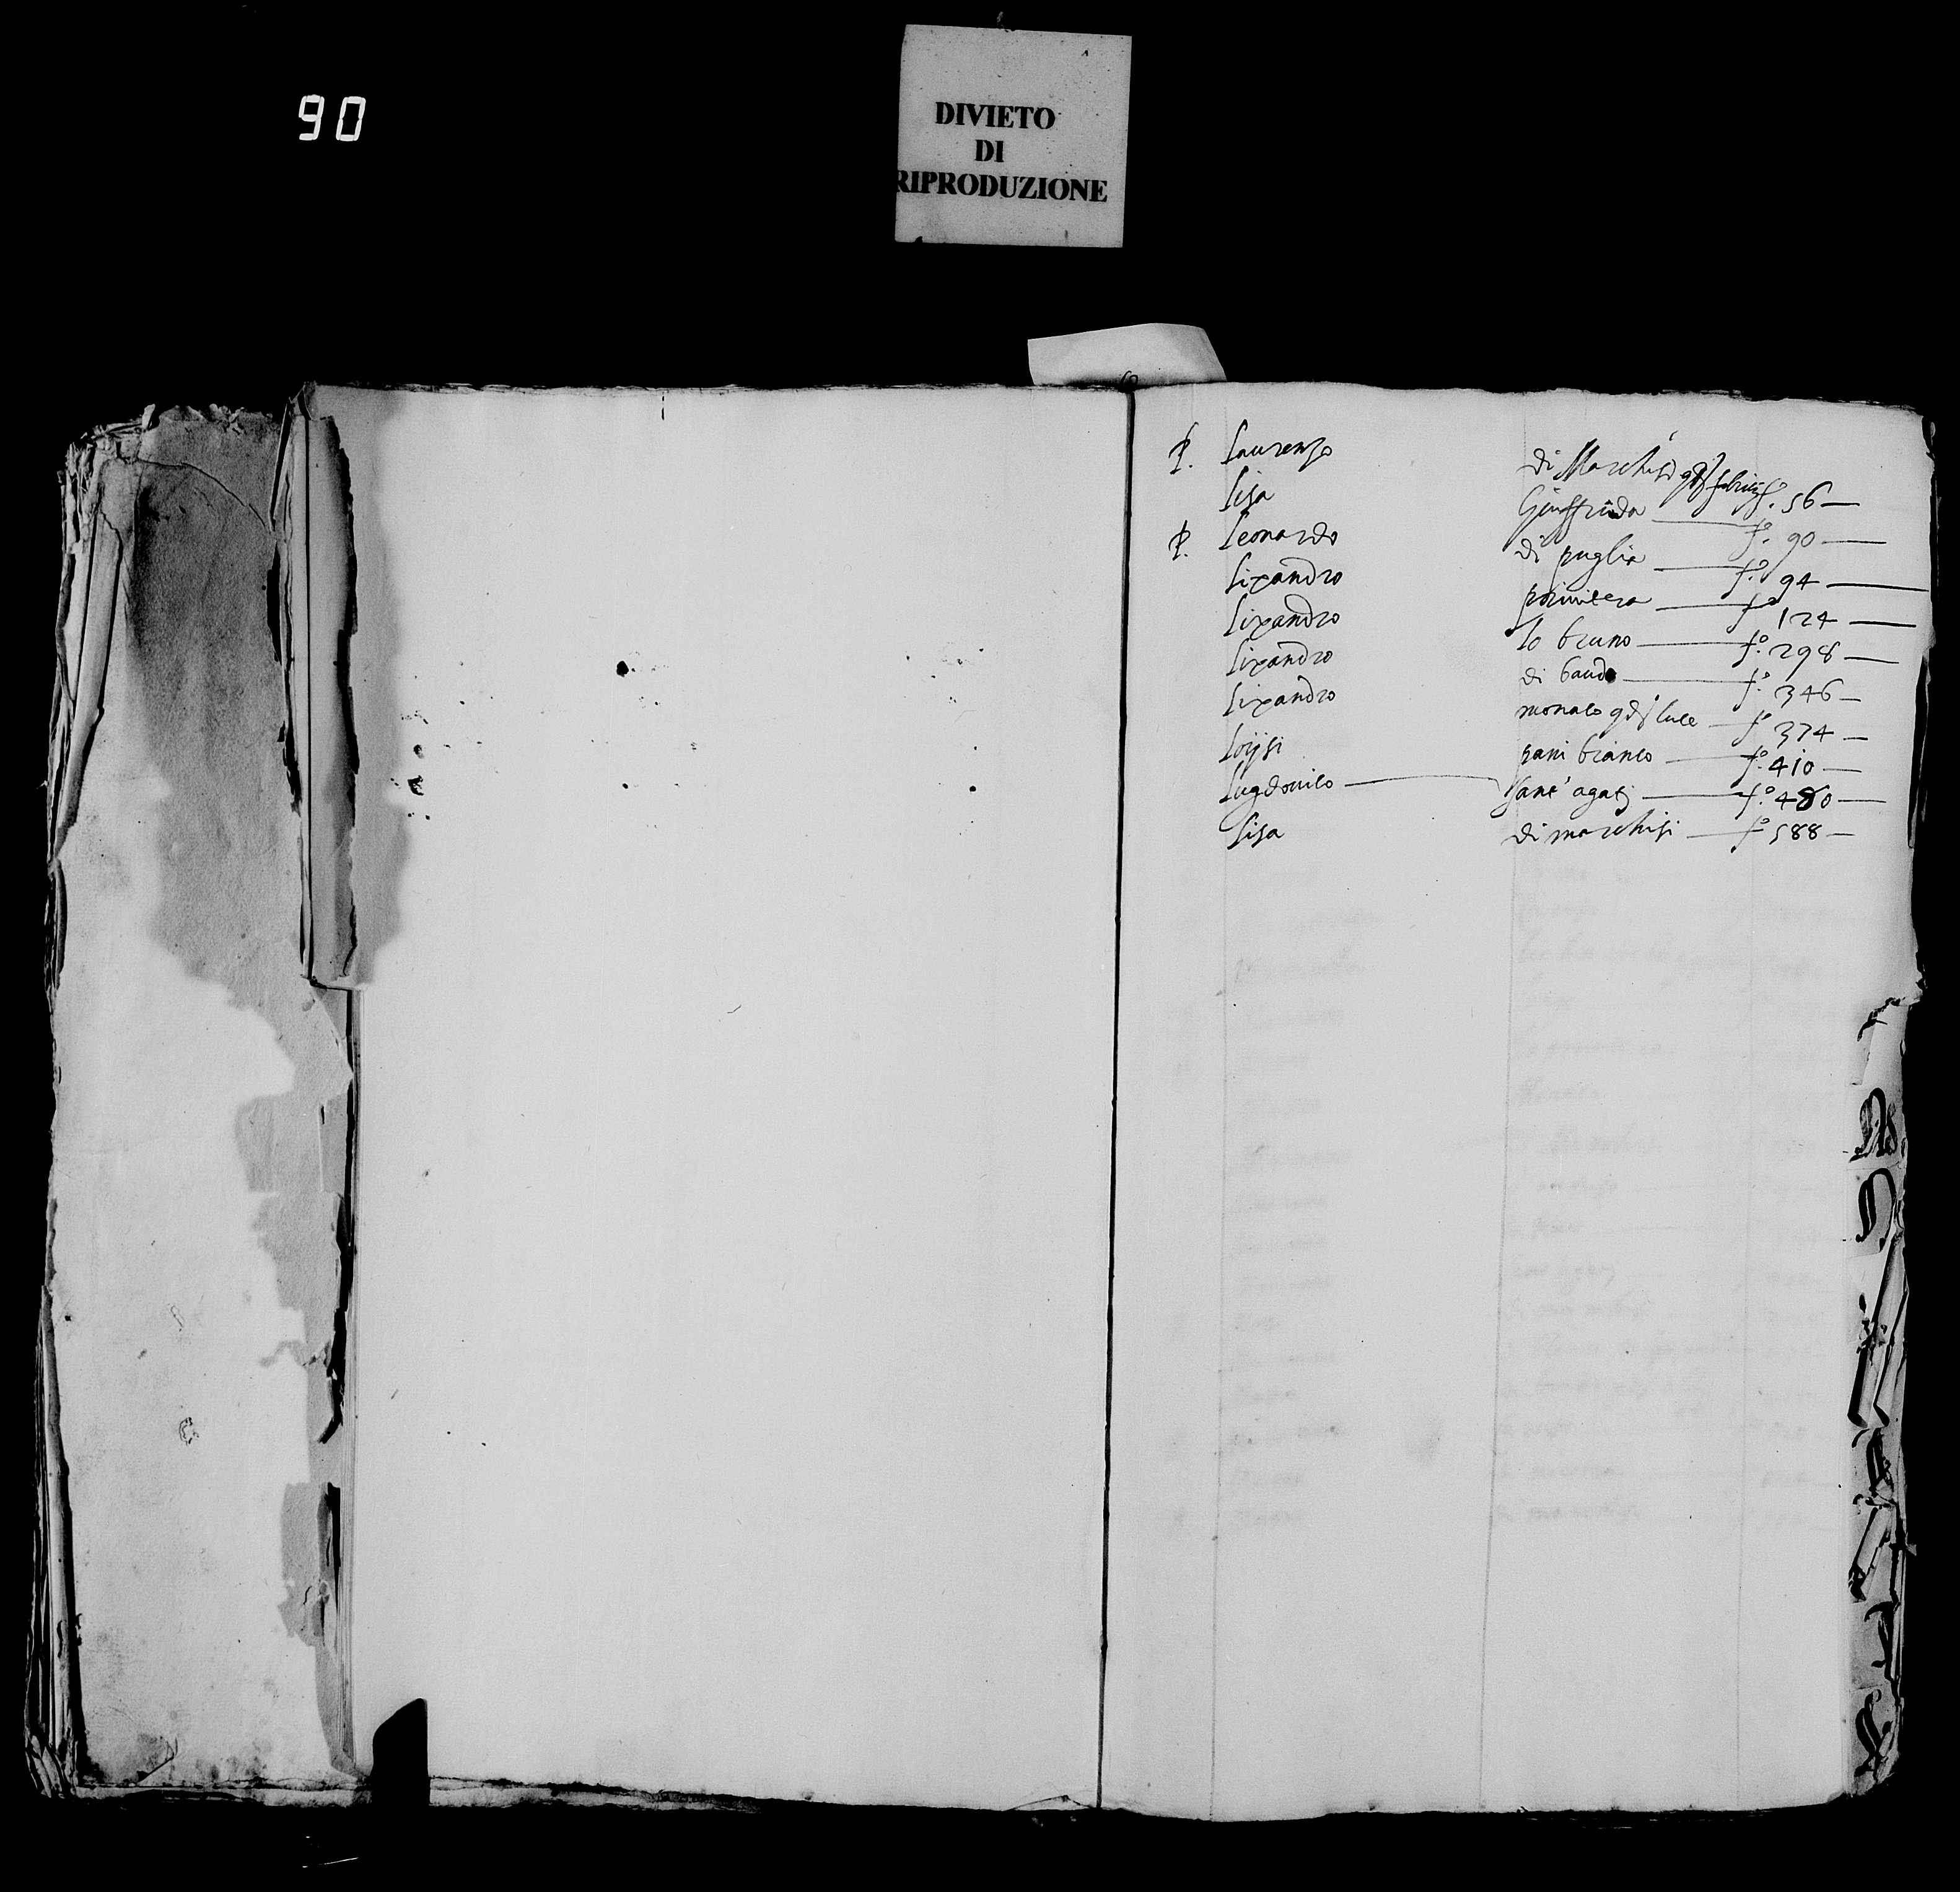 90
DIVIETO
DI
RIPRODUZIONE
P. Laurenzo di Marchisi f.º 56
Lisa Giuffrida f.º 90
P. Leonardo di puglia f.º 94
Lixandro primitera f.º 124
Lixandro lo bruno f.º 298
Lixandro di baudo f.º 346
Lixandro monaco f.º 374
Loijsi pani bianco f.º 410
Lugdovico sant' agati f.º 480
Lisa di marchisi f.º 588